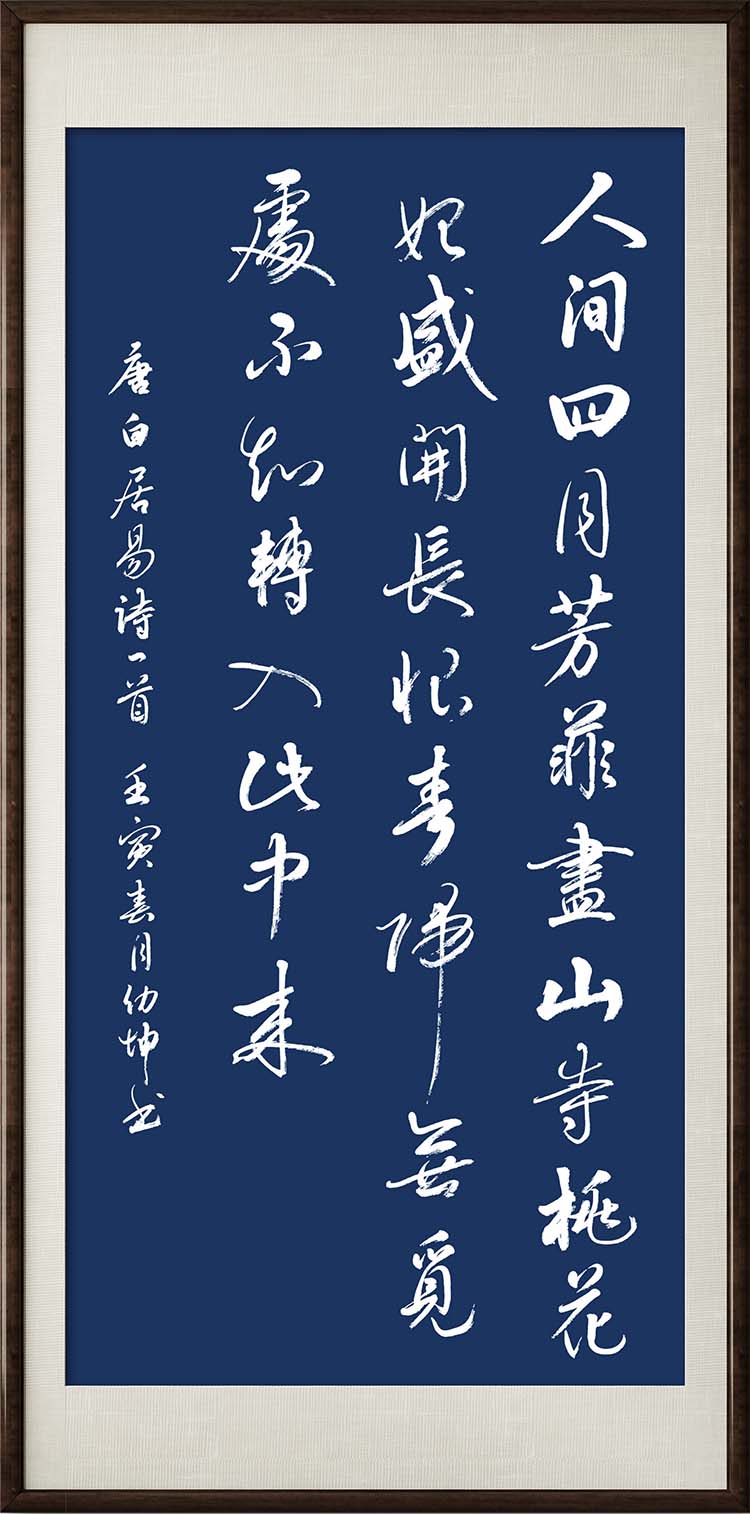 人间四月芳菲盡山寺桃花
始盛開長恨春歸無覓
處不知轉入此中来
唐白居易詩一首 壬寅春月幼坤书